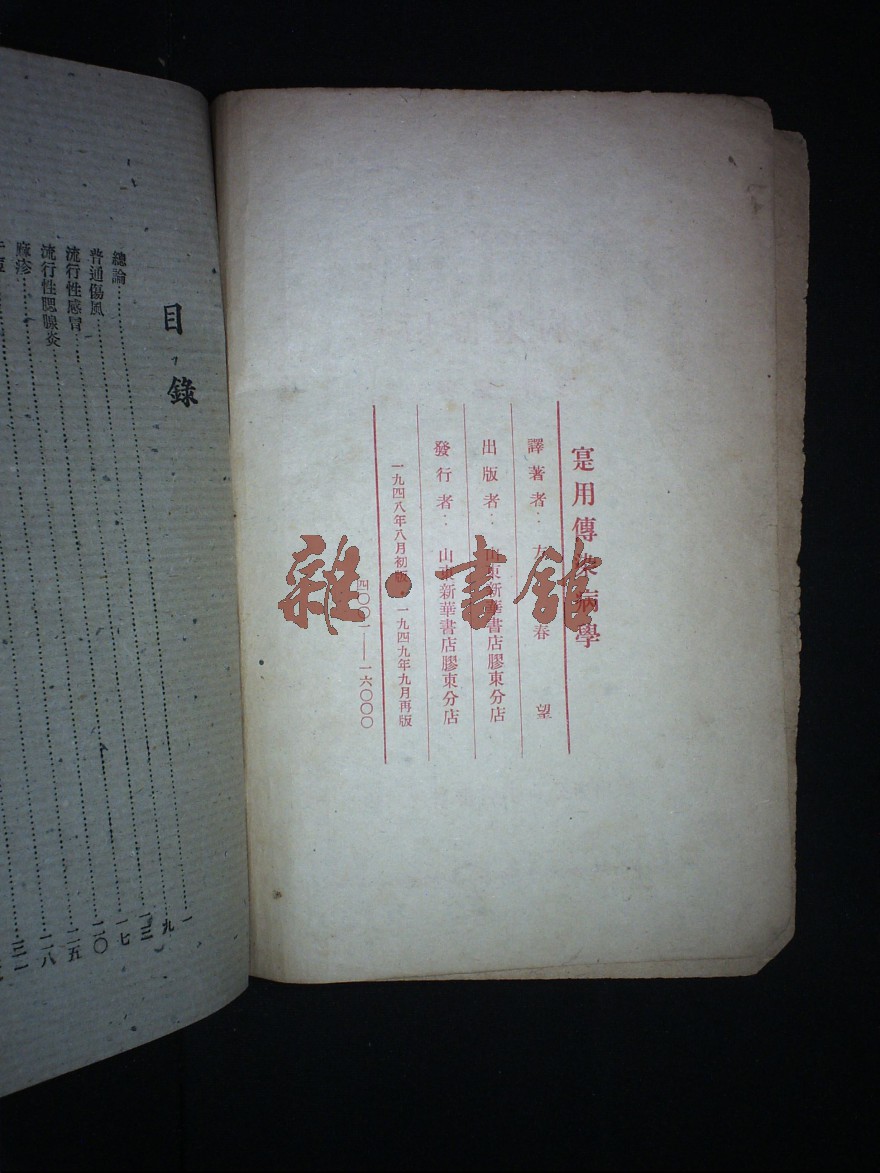 寔用傳染病學
譯著者：方春望
出版者：山東新華書店膠東分店
發行者：山東新華書店膠東分店
一九四八年八月初版·一九四九年九月再版
四〇〇一——一六〇〇〇
雜·書館
目錄
總論 一
普通傷風 九
流行性感冒 一三
流行性腮腺炎 一七
麻疹 二〇
二五
二八
三一